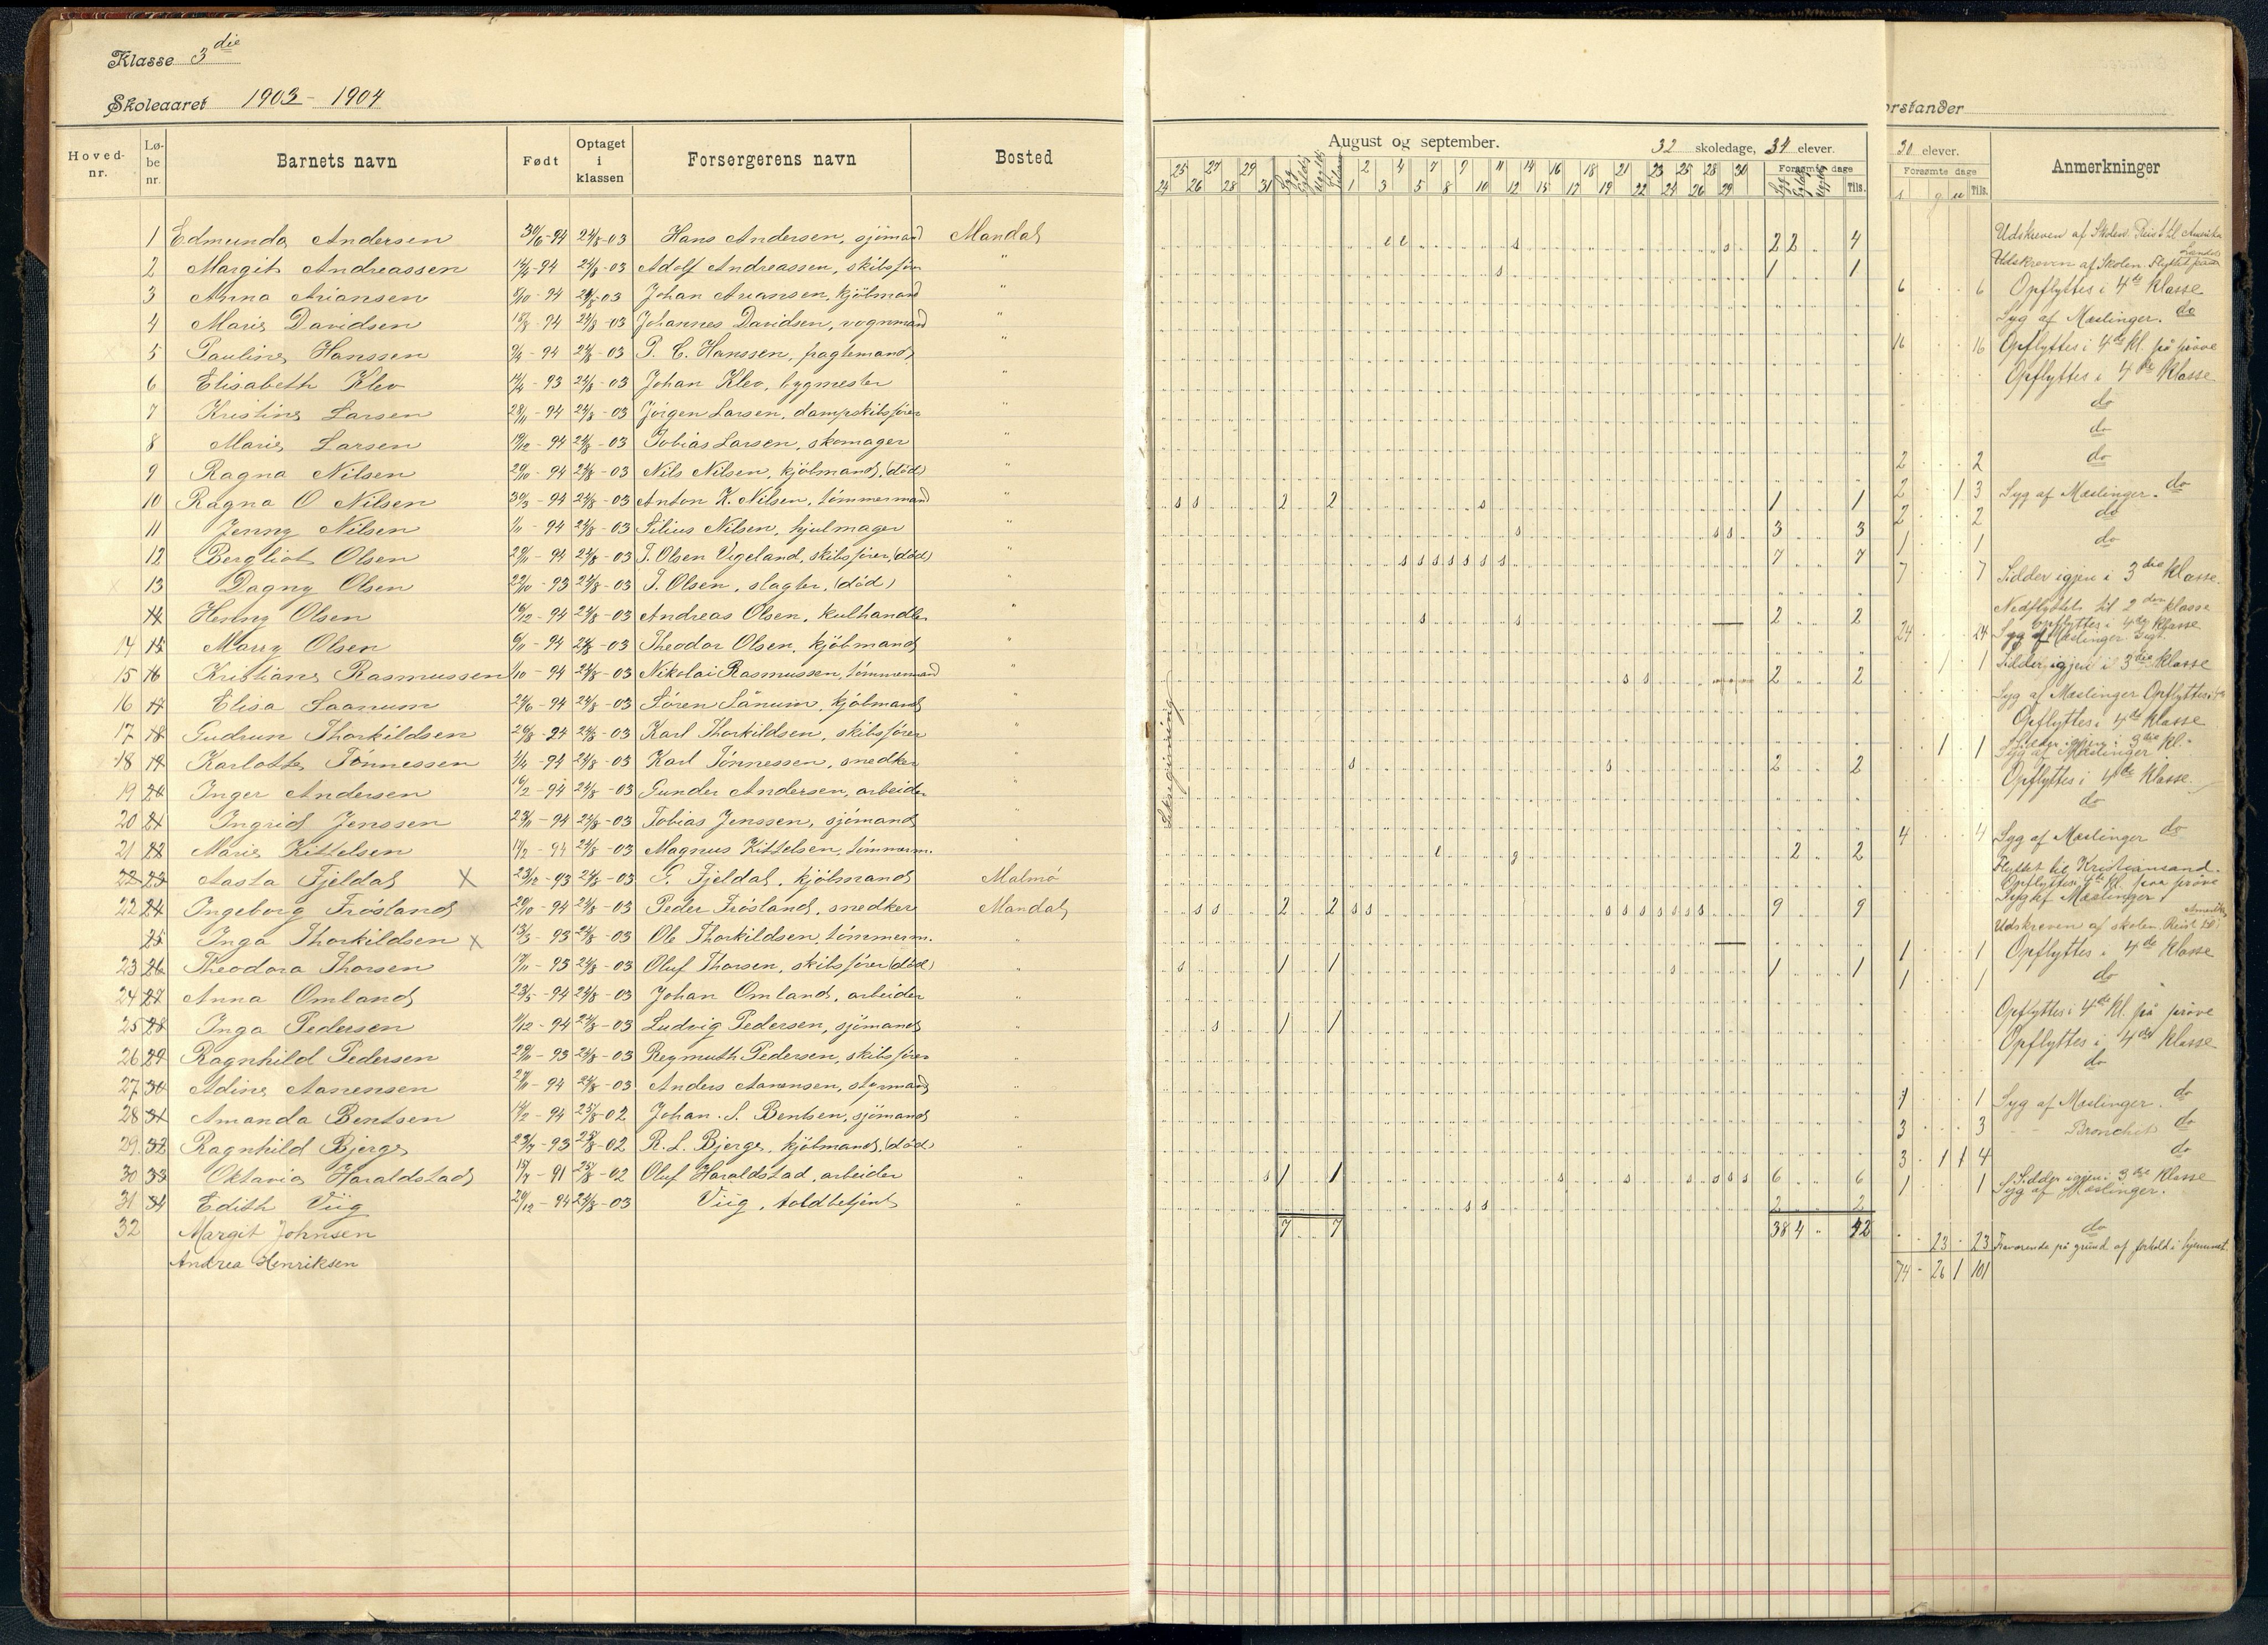 Klasse 3die
Skoleaaret 1903 - 1904
orstander
Hoved-nr. Lø-be nr. Barnets navn Født Optaget i klassen Forsørgerens navn Bosted
August og september. 32 skoledage, 34 elever.
Forsømte dage Tils.
30 elever. Anmerkninger
Forsømte dage
s g u Tils.
25 27 29 2 4 7 9 11 14 16 18 21 23 25 28 30
24 26 28 31 1 3 5 8 10 12 15 17 19 22 24 26 29
1 Edmunda Andersen 30/6-94 24/8-03 Hans Andersen, sjömand Mandal 2 2 4 Udskreven af Skolen. Reist til Amerika
2 Margit Andreassen 14/4-94 24/8-03 Adolf Andreassen, skibsfører " 1 1 Udskreven af Skolen. Flyttet paa Landet
3 Anna Ariansen 8/10-94 24/8-03 Johan Ariansen, kjöbmand " 6 6 Opflyttes i 4de Klasse
4 Marie Davidsen 18/8-94 24/8-03 Johannes Davidsen, vognmand " Syg af Mæslinger. do
5 Pauline Hanssen 9/4-94 24/8-03 P. C. Hanssen, fragtemand " 16 16 Opflyttes i 4de Kl. på pröve
6 Elisabeth Klev 14/4-93 24/8-03 Johan Klev, bygmester " Opflyttes i 4de Klasse
7 Kristine Larsen 28/11-94 24/8-03 Jörgen Larsen, dampskibsfører " do
8 Marie Larsen 19/12-94 24/8-03 Tobias Larsen, skomager " do
9 Ragna Nilsen 29/10-94 24/8-03 Nils Nilsen, kjöbmand, (död) " 2 2 do
10 Ragna O Nilsen 30/3-94 24/8-03 Anton K. Nilsen, tömmermand " s s 2 2 s 1 1 2 1 3 Syg af Mæslinger. do
11 Jenny Nilsen 1/11-94 24/8-03 Silius Nilsen, hjulmager " s s s 3 3 2 2 do
12 Bergliot Olsen 29/11-94 24/8-03 T. Olsen Vigeland, skibsfører, (död) " s s s s s s s 7 7 1 1 do
13 Dagny Olsen 22/10-93 24/8-03 T. Olsen, slagter, (död) " 7 7 Sidder igjen i 3die Klasse.
14 Henny Olsen 16/12-94 24/8-03 Andreas Olsen, kulhandler " s s 2 2 Nedflyttet til 2den Klasse
14 15 Mary Olsen 6/11-94 24/8-03 Theodor Olsen, kjöbmand " 24 24 Opflyttes i 4de Klasse Syg af Mæslinger
15 16 Kristiane Rasmussen 1/10-94 24/8-03 Nikolai Rasmussen, tömmermand " s s 2 2 1 1 Sidder igjen i 3die Klasse
16 17 Elisa Saanum 24/6-94 24/8-03 Sören Sånum, kjöbmand " Syg af Mæslinger Opflyttes i 4de
17 18 Gudrun Thorkildsen 26/8-94 24/8-03 Karl Thorkildsen, skibsfører " Opflyttes i 4de Klasse
18 19 Karlotte Tönnessen 1/4-94 24/8-03 Karl Tönnessen, snedker " s s 2 2 1 1 Sidder igjen i 3die Kl. Syg af Mæslinger
19 20 Inger Andersen 16/2-94 24/8-03 Gunder Andersen, arbeider " Opflyttes i 4de Klasse
20 21 Ingrid Jenssen 23/11-94 24/8-03 Tobias Jenssen, sjömand " do
21 22 Marie Kittelsen 11/2-94 24/8-03 Magnus Kittelsen, tömmerm. " 2 2 4 4 Syg af Mæslinger do
22 23 Aasta Fjeldal X 23/12-93 24/8-03 G. Fjeldal, kjöbmand Malmö Flyttet til Kristiansand.
22 24 Ingeborg Frösland 20/10-94 24/8-03 Peder Frösland, snedker Mandal s s 2 2 s s s s s s s s s 9 9 Opflyttes i 4de Kl. paa pröve Syg af Mæslinger
25 Inga Thorkildsen X 13/3-93 24/8-03 Ole Thorkildsen, tömmerm. " Udskreven af skolen. Reist til Amerika
23 26 Theodora Thorsen 17/11-93 24/8-03 Oluf Thorsen, skibsfører (död) " s 1 1 s 1 1 1 1 Opflyttes i 4de Klasse
24 27 Anna Omland 23/5-94 24/8-03 Johan Omland, arbeider " 1 1 do
25 28 Inga Pedersen 11/12-94 24/8-03 Ludvig Pedersen, sjömand " s 1 1 Opflyttes i 4de Kl. på pröve
26 29 Ragnhild Pedersen 29/10-93 24/8-03 Regmuth Pedersen, skibsfører " Opflyttes i 4de Klasse
27 30 Adine Aanensen 27/11-94 24/8-03 Anders Aanensen, styrmand " do
28 31 Amanda Bentsen 14/2-94 25/8-02 Johan. S. Bentsen, sjömand " 1 1 Syg af Mæslinger. do
29 32 Ragnhild Bjerge 23/7-93 25/8-02 R. L. Bjerge, kjöbmand, (död) " 3 3 - - Bronchit do
30 33 Oktavia Haraldstad 15/7-91 25/8-02 Oluf Haraldstad, arbeider " s 1 1 s s s s s s 6 6 3 1 1 4 do
31 34 Edith Viig 20/12-94 24/8-03 Viig, toldbetjent " s s 2 2 1 1 Sidder igjen i 3die Klasse Syg af Mæslinger.
32 Margit Johnsen 7 7 38 4 42 do
Andrea Henriksen 23 23 Fraværende på grund af forhold i hjemmet.
74 - 26 1 101